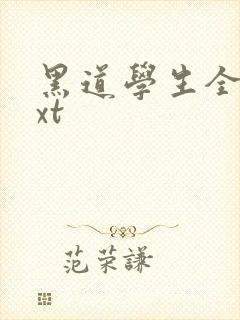 黑道學生全
xt
范荣謙